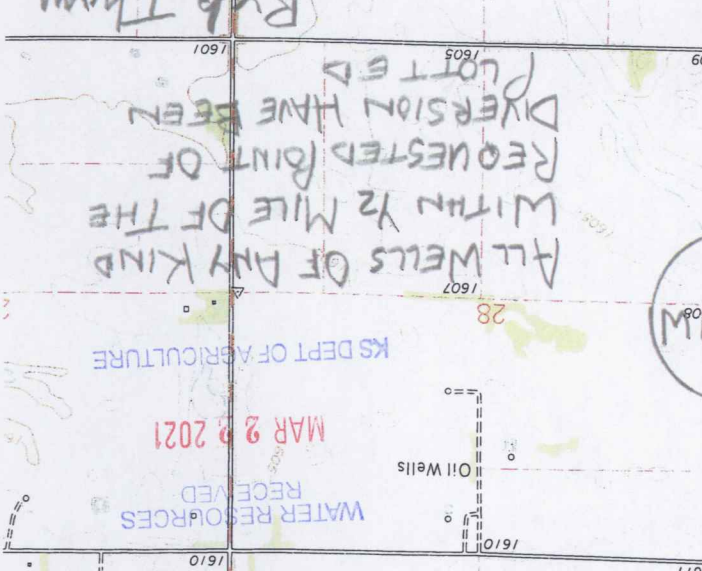 1610
1610
WATER RESOURCES
RECEIVED
Oil Wells
605
MAR 2 2 2021
KS DEPT OF AGRICULTURE
28
1607
ALL WELLS OF ANY KIND
WITHIN 1/2 MILE OF THE
REQUESTED POINT OF
DIVERSION HAVE BEEN
PLOTTED
1605
1601